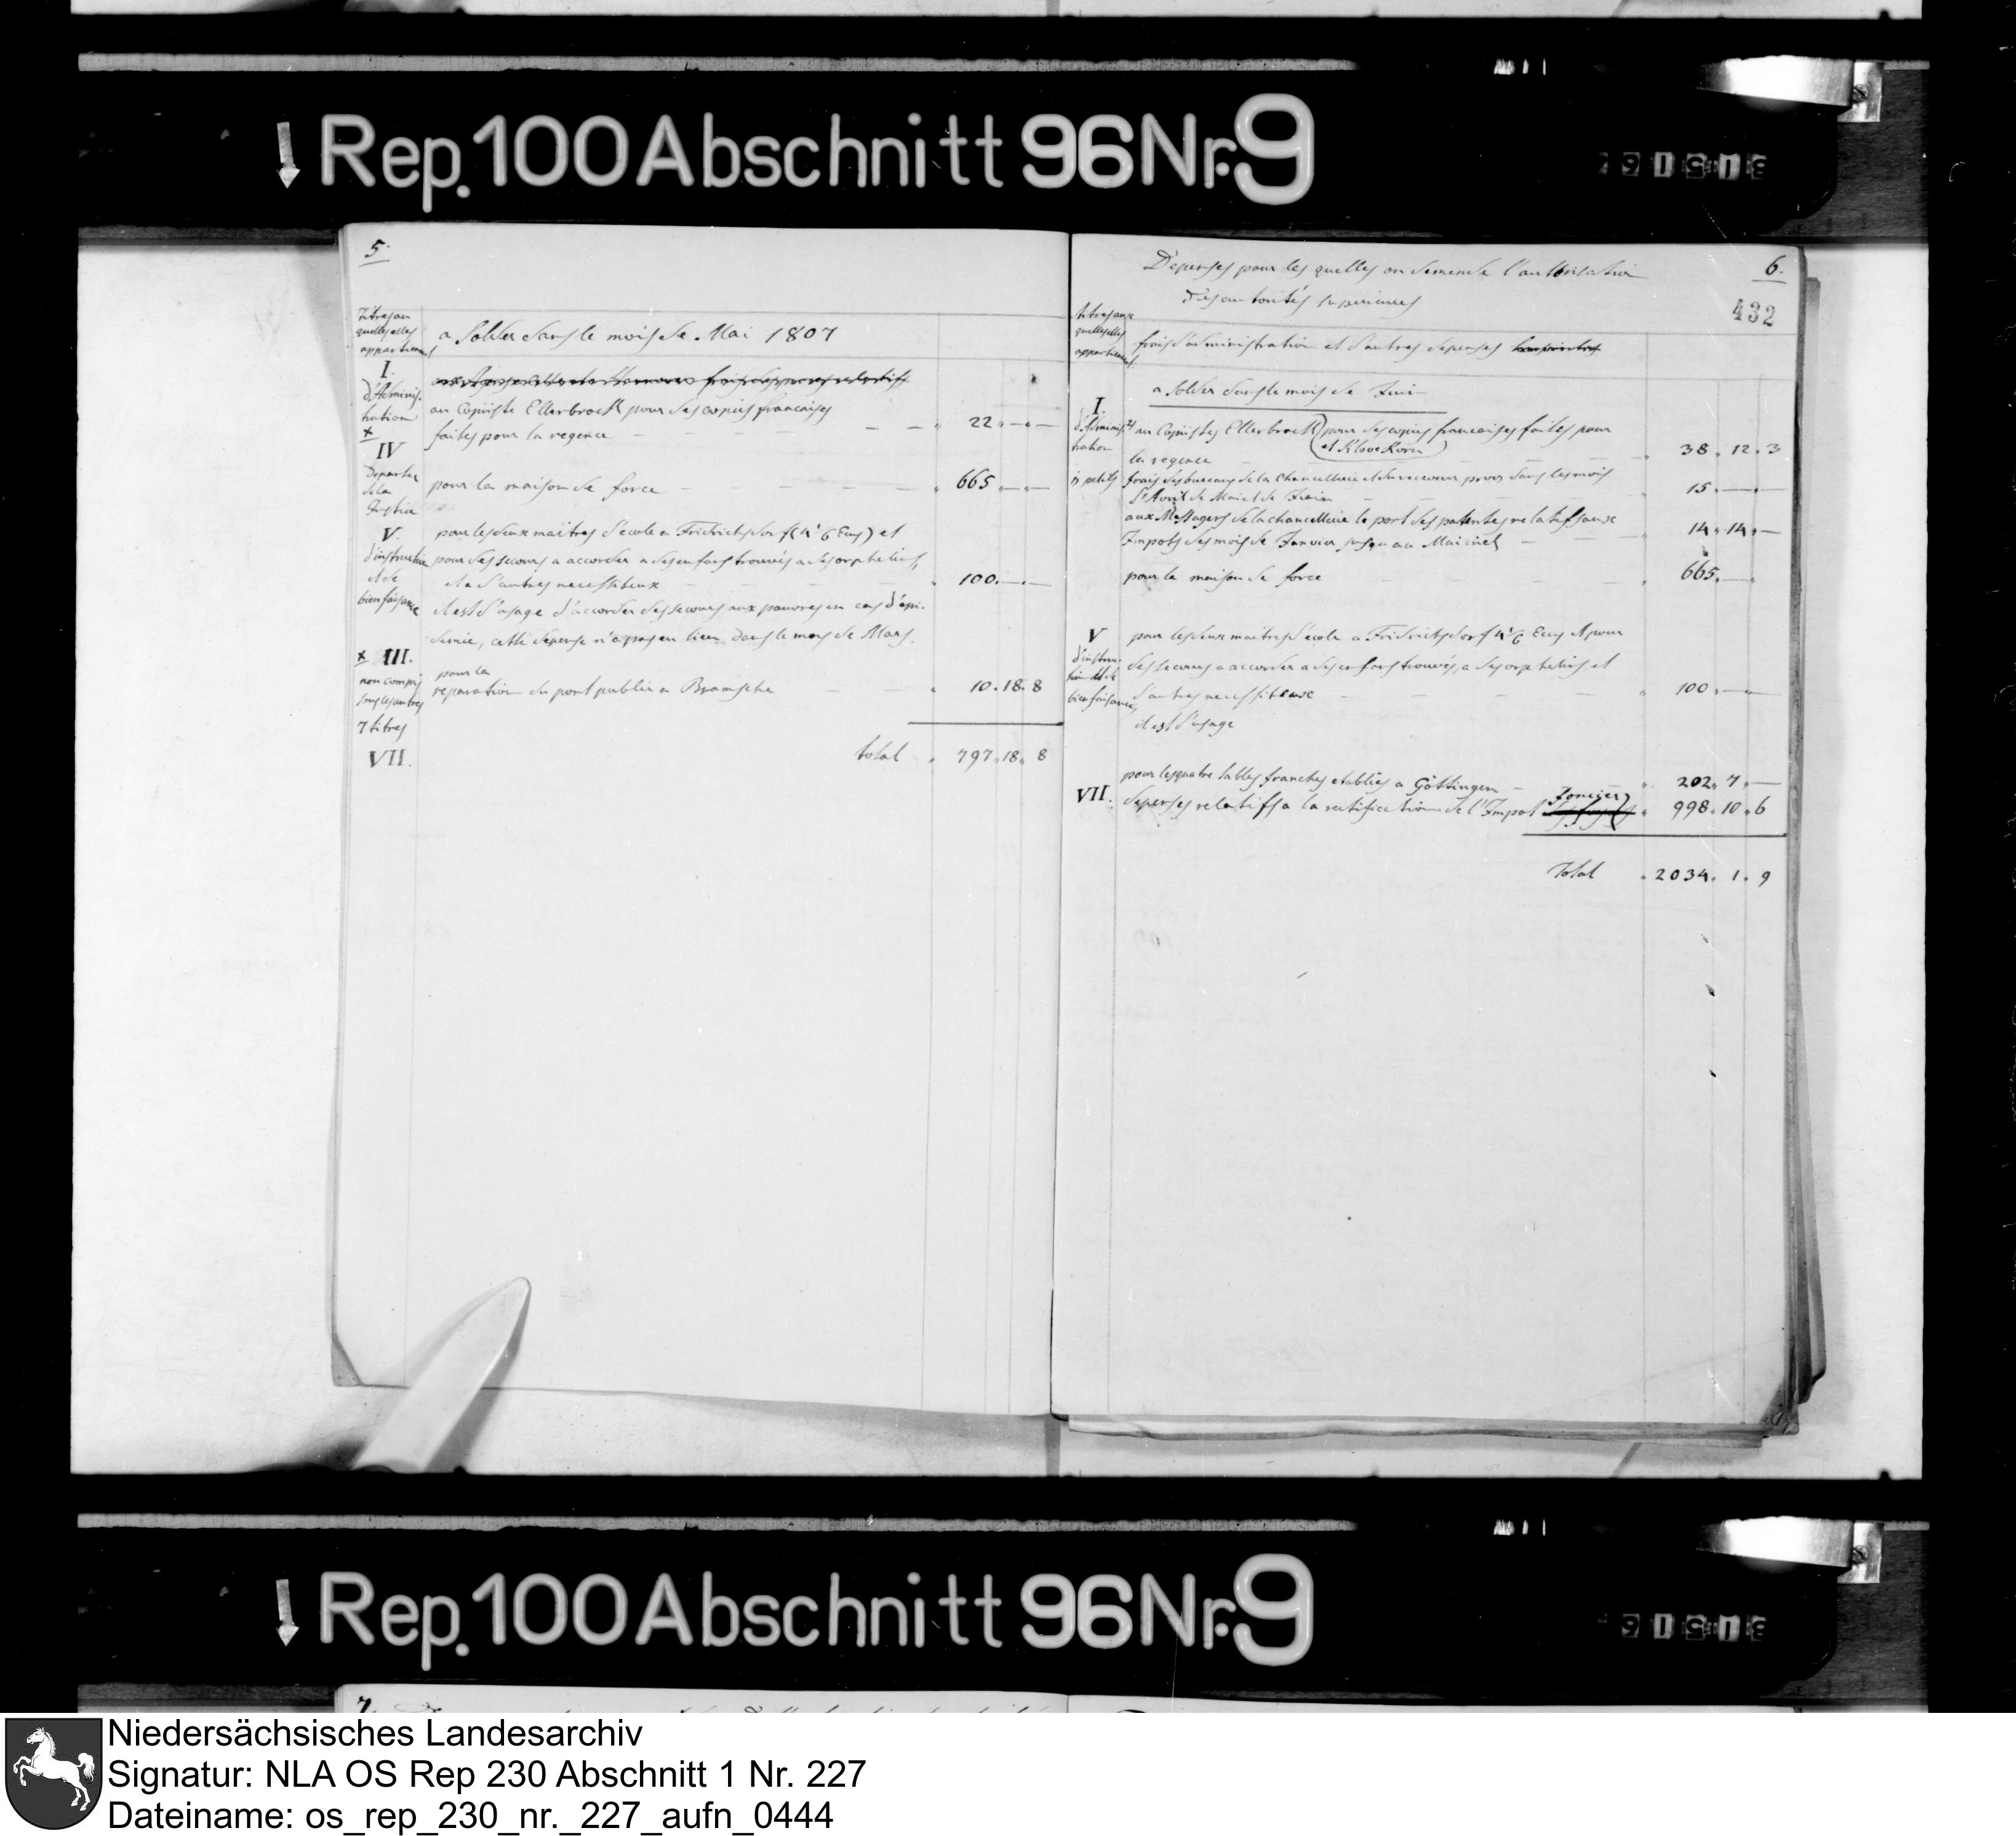 Rep. 100 Abschnitt 96 Nr. 9
5.
Titres au
quelles elles
appartiennent
a solder dans le mois de Mai 1807
I.
d'Adminis-
tration
au Copiiste Ellerbrock pour des copies francaises
faites pour la regence — — — — „ 22 „ — „ —
x
IV
Departm
de la
Justice
pour la maison de force — — — — „ 665 „ — „ —
V.
d'instruction
et de
bienfaisance
pour les deux maitres d'école a Fridrichsdorf (4 1/6 Ecus) et
pour des secours a accorder a des enfans trouvés a des orphelins,
et a d'autres necessiteux — — — „ 100 „ — „ —
il est d'usage d'accorder des secours aux pauvres en cas d'epi-
demie, cette depense n'a pas eu lieu dans le mois de Mars.
x III.
non compris
sous les autres
7 titres
pour la
reparation du pont public a Bramsche — „ 10 „ 18 „ 8
VII.
total „ 797 „ 18 „ 8
6.
432
Depenses pour les quelles on demende l'authorisation
des autorités superieures
titres aux
quelles elles
appartiennent
frais d'administration et d'autres depenses
a solder dans le mois de Juin
I.
d'Adminis-
tration
2) au Copiistes Ellerbrock (pour des copies francaises faites pour
et Klovekorn)
la regence — — — — „ 38 „ 12 „ 3
1) petits frais des bureaux de la Chancellerie et du receveur prov. dans les mois
d'Avril de Mai et de Juin — — — „ 15 „ — „ —
aux Messagers de la chancellerie le port des patentes relatifs aux
Impots des mois de Janvier jusqu'au Mai incl. — — „ 14 „ 14 „ —
pour la maison de force — — — „ 665 „ — „
V
d'instruc-
tion et de
bienfaisance,
pour les deux maitres d'école a Fridrichsdorf 4 1/6 Ecus et pour
des secours a accorder a des enfans trouvés, a des orphelins et
d'autres necessiteux — — — — „ 100 „ — „
il est d'usage
pour les quatre tables franches etablies a Göttingen — „ 202 „ 7 „ —
VII.
Foncier)
depenses relatifs a la rectification de l'Impot „ 998 „ 10 „ 6
Total „ 2034 „ 1 „ 9
Rep. 100 Abschnitt 96 Nr. 9
7.
Niedersächsisches Landesarchiv
Signatur: NLA OS Rep 230 Abschnitt 1 Nr. 227
Dateiname: os_rep_230_nr._227_aufn_0444